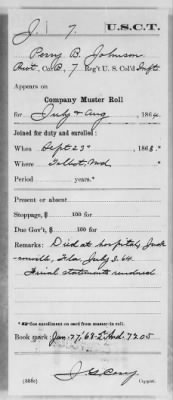 J. 7. U.S.C.T.
Perry B. Johnson
Pvt, Co. B, 7 Reg't U. S. Col'd Inft.
Appears on
Company Muster Roll
for July & Aug, 1864
Joined for duty and enrolled:
When Sept 23, 1863.*
Where Talbot, Md
Period years.*
Present or absent
Stoppage, $ 100 for
Due Gov't, $ 100 for
Remarks: Died at hospital, Jack-
sonville, Fla July 3. 64.
Final statements rendered
*See enrollment on card from muster-in roll.
Book mark:
(858c) Copyist.